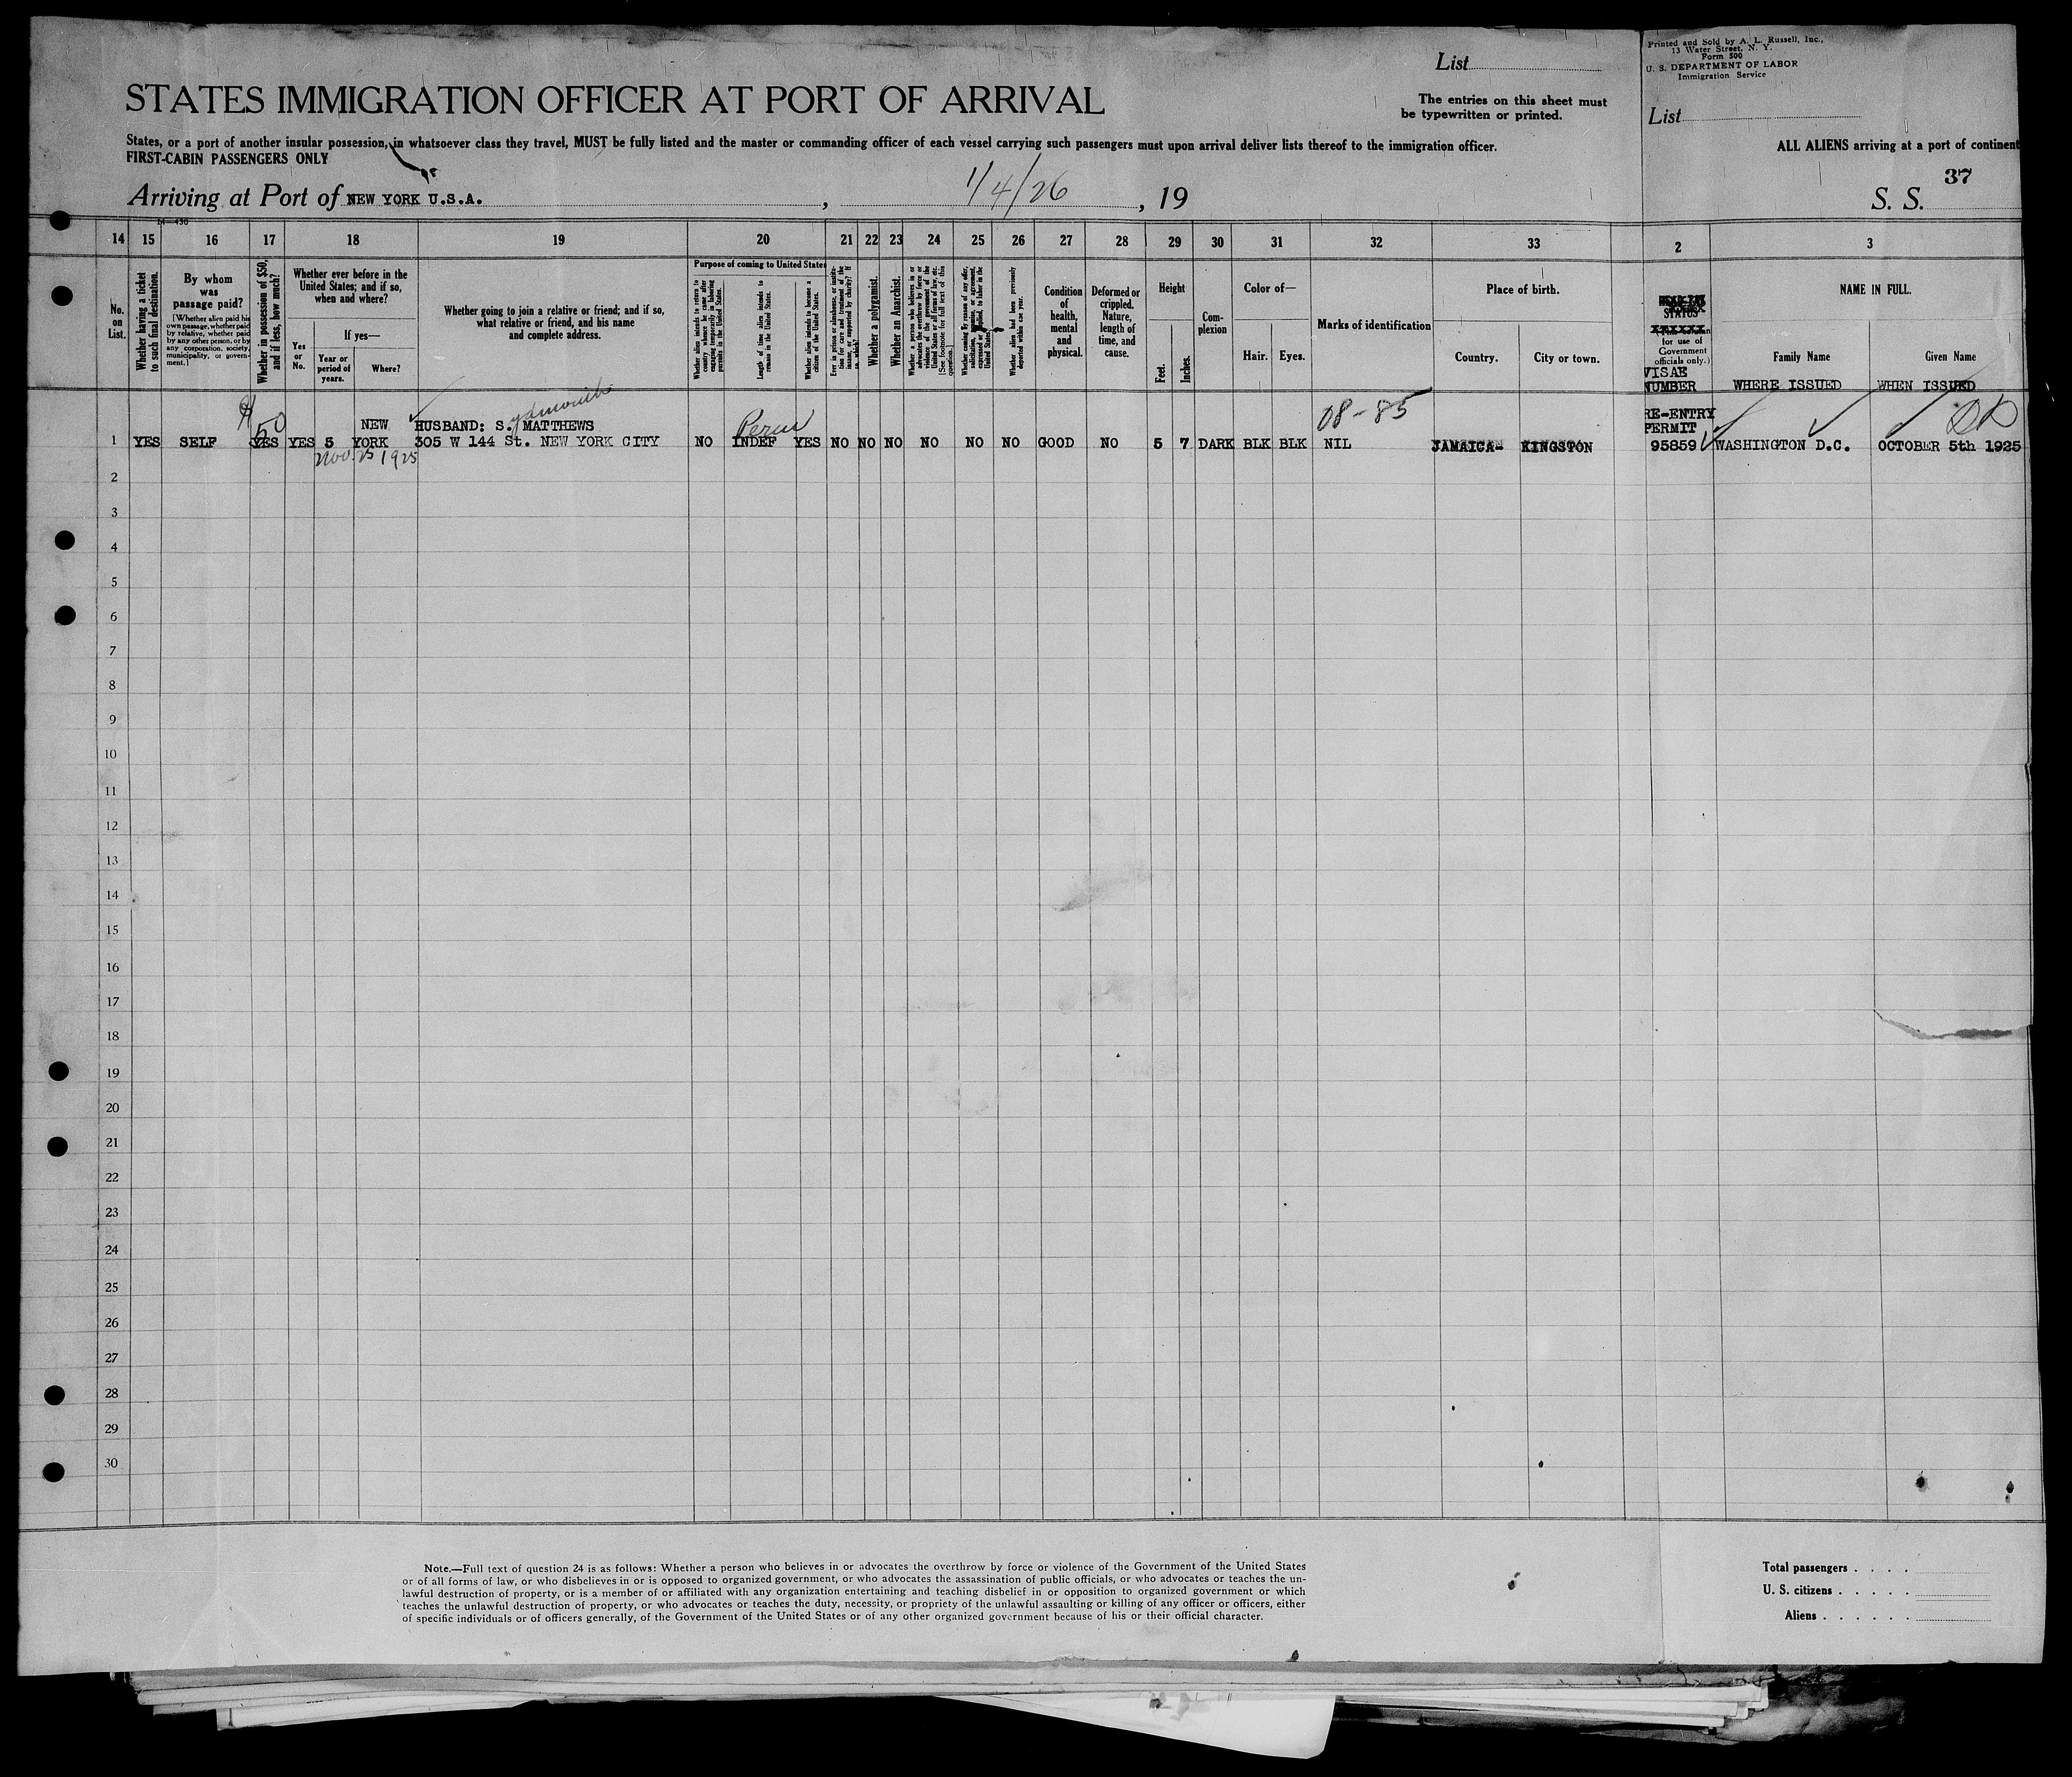 List
Printed and Sold by A. L. Russell, Inc.,
13 Water Street, N. Y.
Form 500
U. S. DEPARTMENT OF LABOR
Immigration Service
STATES IMMIGRATION OFFICER AT PORT OF ARRIVAL
The entries on this sheet must
be typewritten or printed.
List
States, or a port of another insular possession, in whatsoever class they travel, MUST be fully listed and the master or commanding officer of each vessel carrying such passengers must upon arrival deliver lists thereof to the immigration officer.
ALL ALIENS arriving at a port of continent
FIRST-CABIN PASSENGERS ONLY
37
Arriving at Port of NEW YORK U.S.A. , 1/4/26 , 19
S. S.
14—430
14 15 16 17 18 19 20 21 22 23 24 25 26 27 28 29 30 31 32 33 2 3
No. on List.
Whether having a ticket to such final destination.
By whom was passage paid?
[Whether alien paid his own passage, whether paid by relative, whether paid by any other person, or by any corporation, society, municipality, or government.]
Whether in possession of $50, and if less, how much?
Whether ever before in the United States; and if so, when and where?
Yes or No.
If yes—
Year or period of years.
Where?
Whether going to join a relative or friend; and if so, what relative or friend, and his name and complete address.
Purpose of coming to United States
Whether alien intends to return to country whence he came after engaging temporarily in laboring pursuits in the United States.
Length of time alien intends to remain in the United States.
Whether alien intends to become a citizen of the United States.
Ever in prison or almshouse, or institution for care and treatment of the insane, or supported by charity? If so, which?
Whether a polygamist.
Whether an Anarchist.
Whether a person who believes in or advocates the overthrow by force or violence of the Government of the United States or all forms of law, etc. [See footnote for full text of this question.]
Whether coming by reason of any offer, solicitation, promise, or agreement, expressed or implied, to labor in the United States.
Whether alien had been previously deported within one year.
Condition of health, mental and physical.
Deformed or crippled. Nature, length of time, and cause.
Height
Feet.
Inches.
Complexion
Color of—
Hair.
Eyes.
Marks of identification
Place of birth.
Country.
City or town.
STATUS
for use of Government officials only.)
VISAE NUMBER
NAME IN FULL.
Family Name
Given Name
WHERE ISSUED
WHEN ISSUED
$50
NEW
HUSBAND: S. MATTHEWS
08-85
RE-ENTRY
PERMIT
1 YES SELF YES YES 5 YORK 305 W 144 St. NEW YORK CITY NO INDEF YES NO NO NO NO NO NO GOOD NO 5 7 DARK BLK BLK NIL JAMAICA- KINGSTON 95859 WASHINGTON D.C. OCTOBER 5th 1925
Nov. 25 1925
2
3
4
5
6
7
8
9
10
11
12
13
14
15
16
17
18
19
20
21
22
23
24
25
26
27
28
29
30
Note.—Full text of question 24 is as follows: Whether a person who believes in or advocates the overthrow by force or violence of the Government of the United States
or of all forms of law, or who disbelieves in or is opposed to organized government, or who advocates the assassination of public officials, or who advocates or teaches the un-
lawful destruction of property, or is a member of or affiliated with any organization entertaining and teaching disbelief in or opposition to organized government or which
teaches the unlawful destruction of property, or who advocates or teaches the duty, necessity, or propriety of the unlawful assaulting or killing of any officer or officers, either
of specific individuals or of officers generally, of the Government of the United States or of any other organized government because of his or their official character.
Total passengers . . . .
U. S. citizens . . . . .
Aliens . . . . . .